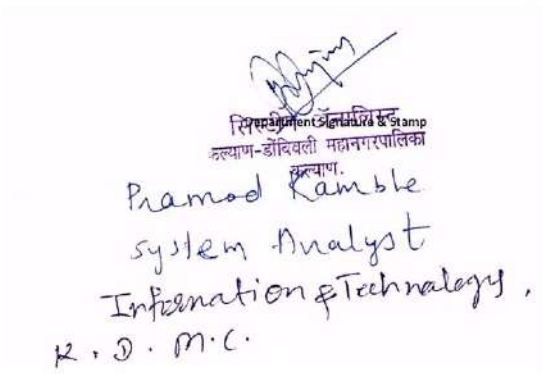 सिस्टीम ॲनालिस्ट
Department Signature & Stamp
कल्याण-डोंबिवली महानगरपालिका
कल्याण.
Pramod Kamble
System Analyst
Information & Technology,
K. D. M.C.